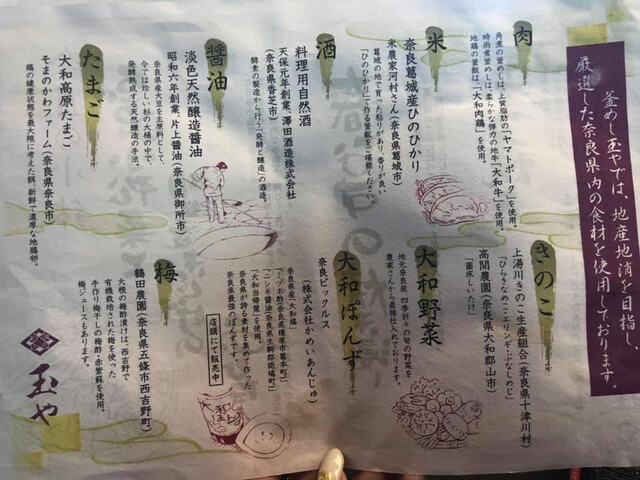 釜めし玉やでは、地産地消を目指し、
厳選した奈良県内の食材を使用しております。
肉
角煮の釜めしは、上質脂肪の「ヤマトポーク」を使用。
時雨煮釜めしは、柔らかな弾力の地牛「大和牛」を使用。
地鶏の釜飯は、「大和肉鶏」を使用。
米
奈良葛城産ひのひかり
米農家河村さん(奈良県葛城市)
葛城の地で育った粘りがあり、香りが良い
「ひのひかり」で作る釜飯をご堪能ください。
酒
料理用自然酒
天保元年創業、澤田酒造株式会社
(奈良県香芝市)
酵素の製造から行う「発酵と醸造」の酒造。
醤油
淡色天然醸造醤油
昭和六年創業、片上醤油(奈良県御所市)
奈良県産大豆を主原料として、
今では珍しい杉の大桶の中で、
発酵熟成する天然醸造の手法。
たまご
大和高原たまご
そまのかわファーム(奈良県奈良市)
鶏の健康状態を最大限に考えた餌。新鮮で濃厚な地鶏卵。
きのこ
上湯川きのこ生産組合(奈良県十津川村)
「ひらきなめこ・エリンギ・ぶなしめじ」
高間農園(奈良県大和郡山市)
「菌床しいたけ」
大和野菜
地元奈良産、四季折々の旬の野菜を
農家さんから直接仕入れております。
大和ぽんず
奈良ピックルス
(株式会社かめいあんじゅ)
奈良県産「大和橘」
「ミヅホ酢」(奈良県橿原市葛本町)
「ニシキ醤油」(奈良県生駒郡斑鳩町)
「大和蜂蜜」を使用。
奈良県が誇る素材を集めて作った
奈良県最強のぽんずです。
店舗にて販売中
梅
鶴田農園(奈良県五條市西吉野町)
大根の梅酢漬けは、西吉野で
有機栽培された梅を使った
手作り梅干しの梅酢・赤紫蘇を使用。
梅ジュースもあります。
玉や